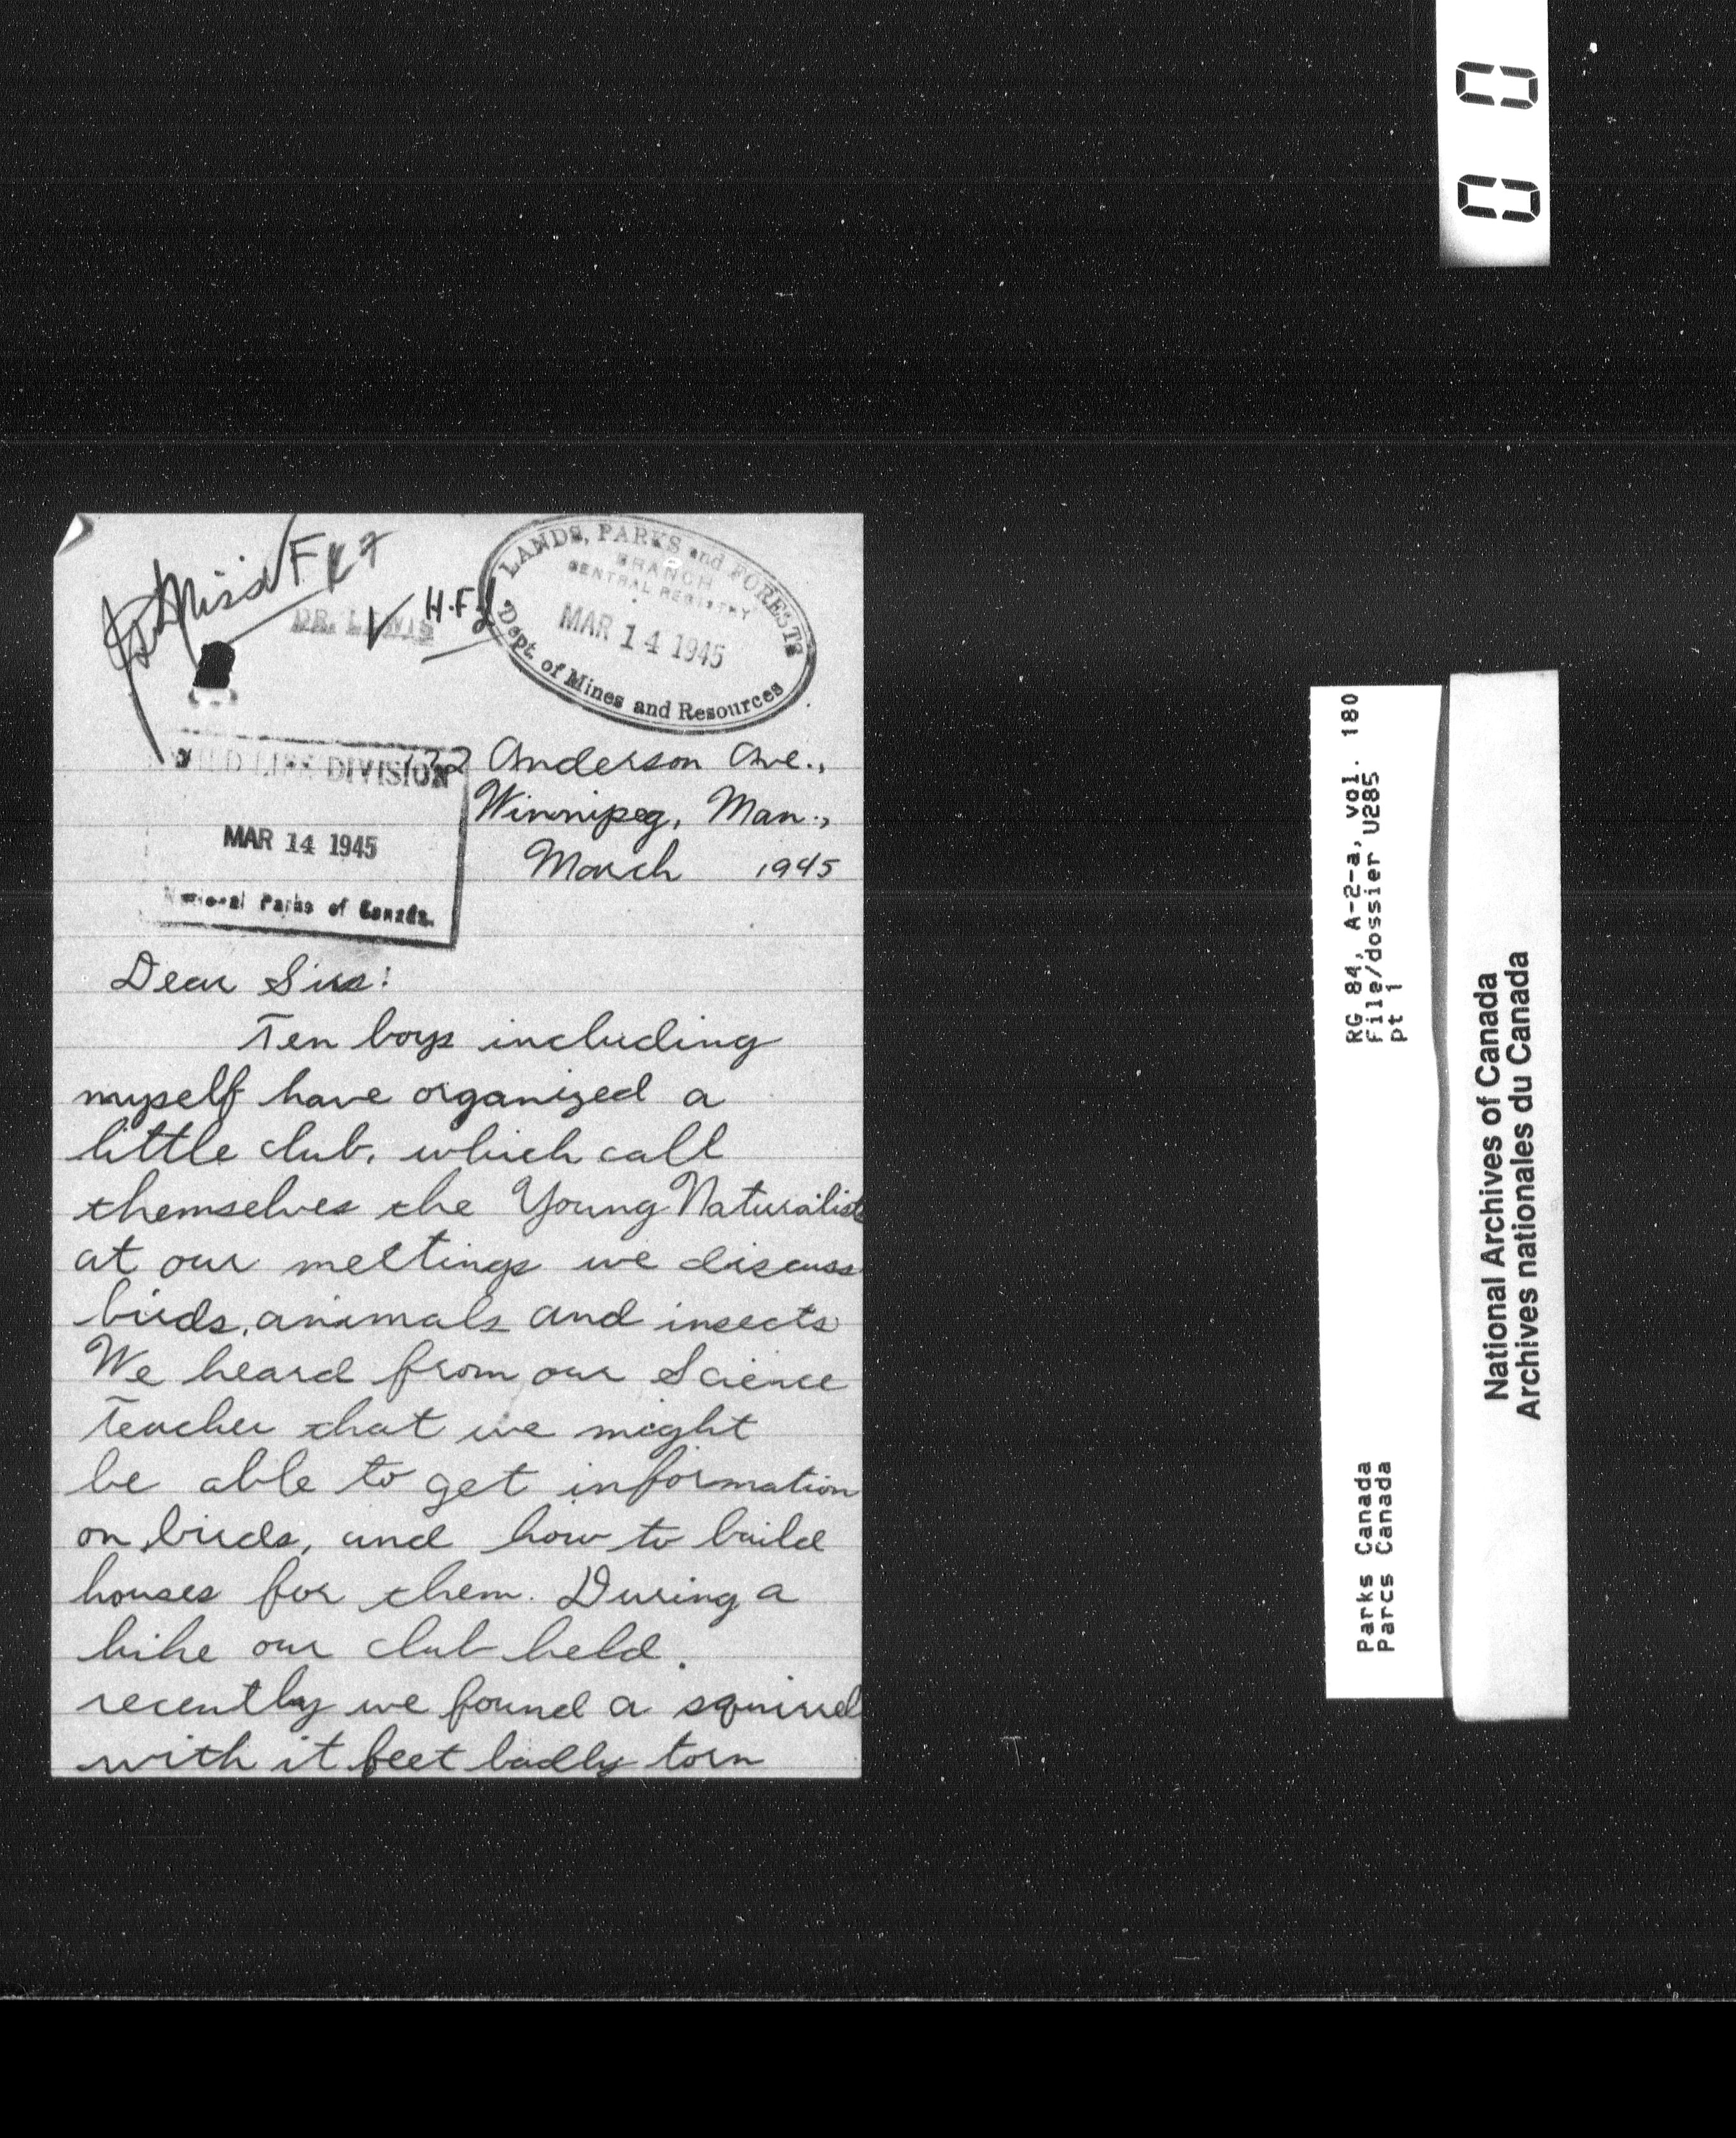 Miss
DR. LEWIS
H.F.L.
LANDS, PARKS and FORESTS
BRANCH
CENTRAL REGISTRY
MAR 14 1945
Dept. of Mines and Resources
WILD LIFE DIVISION
MAR 14 1945
National Parks of Canada.
Anderson Ave.,
Winnipeg, Man.,
March 1945
Dear Sirs:
Ten boys including
myself have organized a
little club, which call
themselves the Young Naturalists
at our meetings we discuss
birds, animals and insects
We heard from our Science
Teacher that we might
be able to get information
on birds, and how to build
houses for them. During a
hike our club held.
recently we found a squirrel
with it feet badly torn
0 0
RG 84, A-2-a, vol. 180
File/dossier U285
pt 1
Parks Canada
Parcs Canada
National Archives of Canada
Archives nationales du Canada